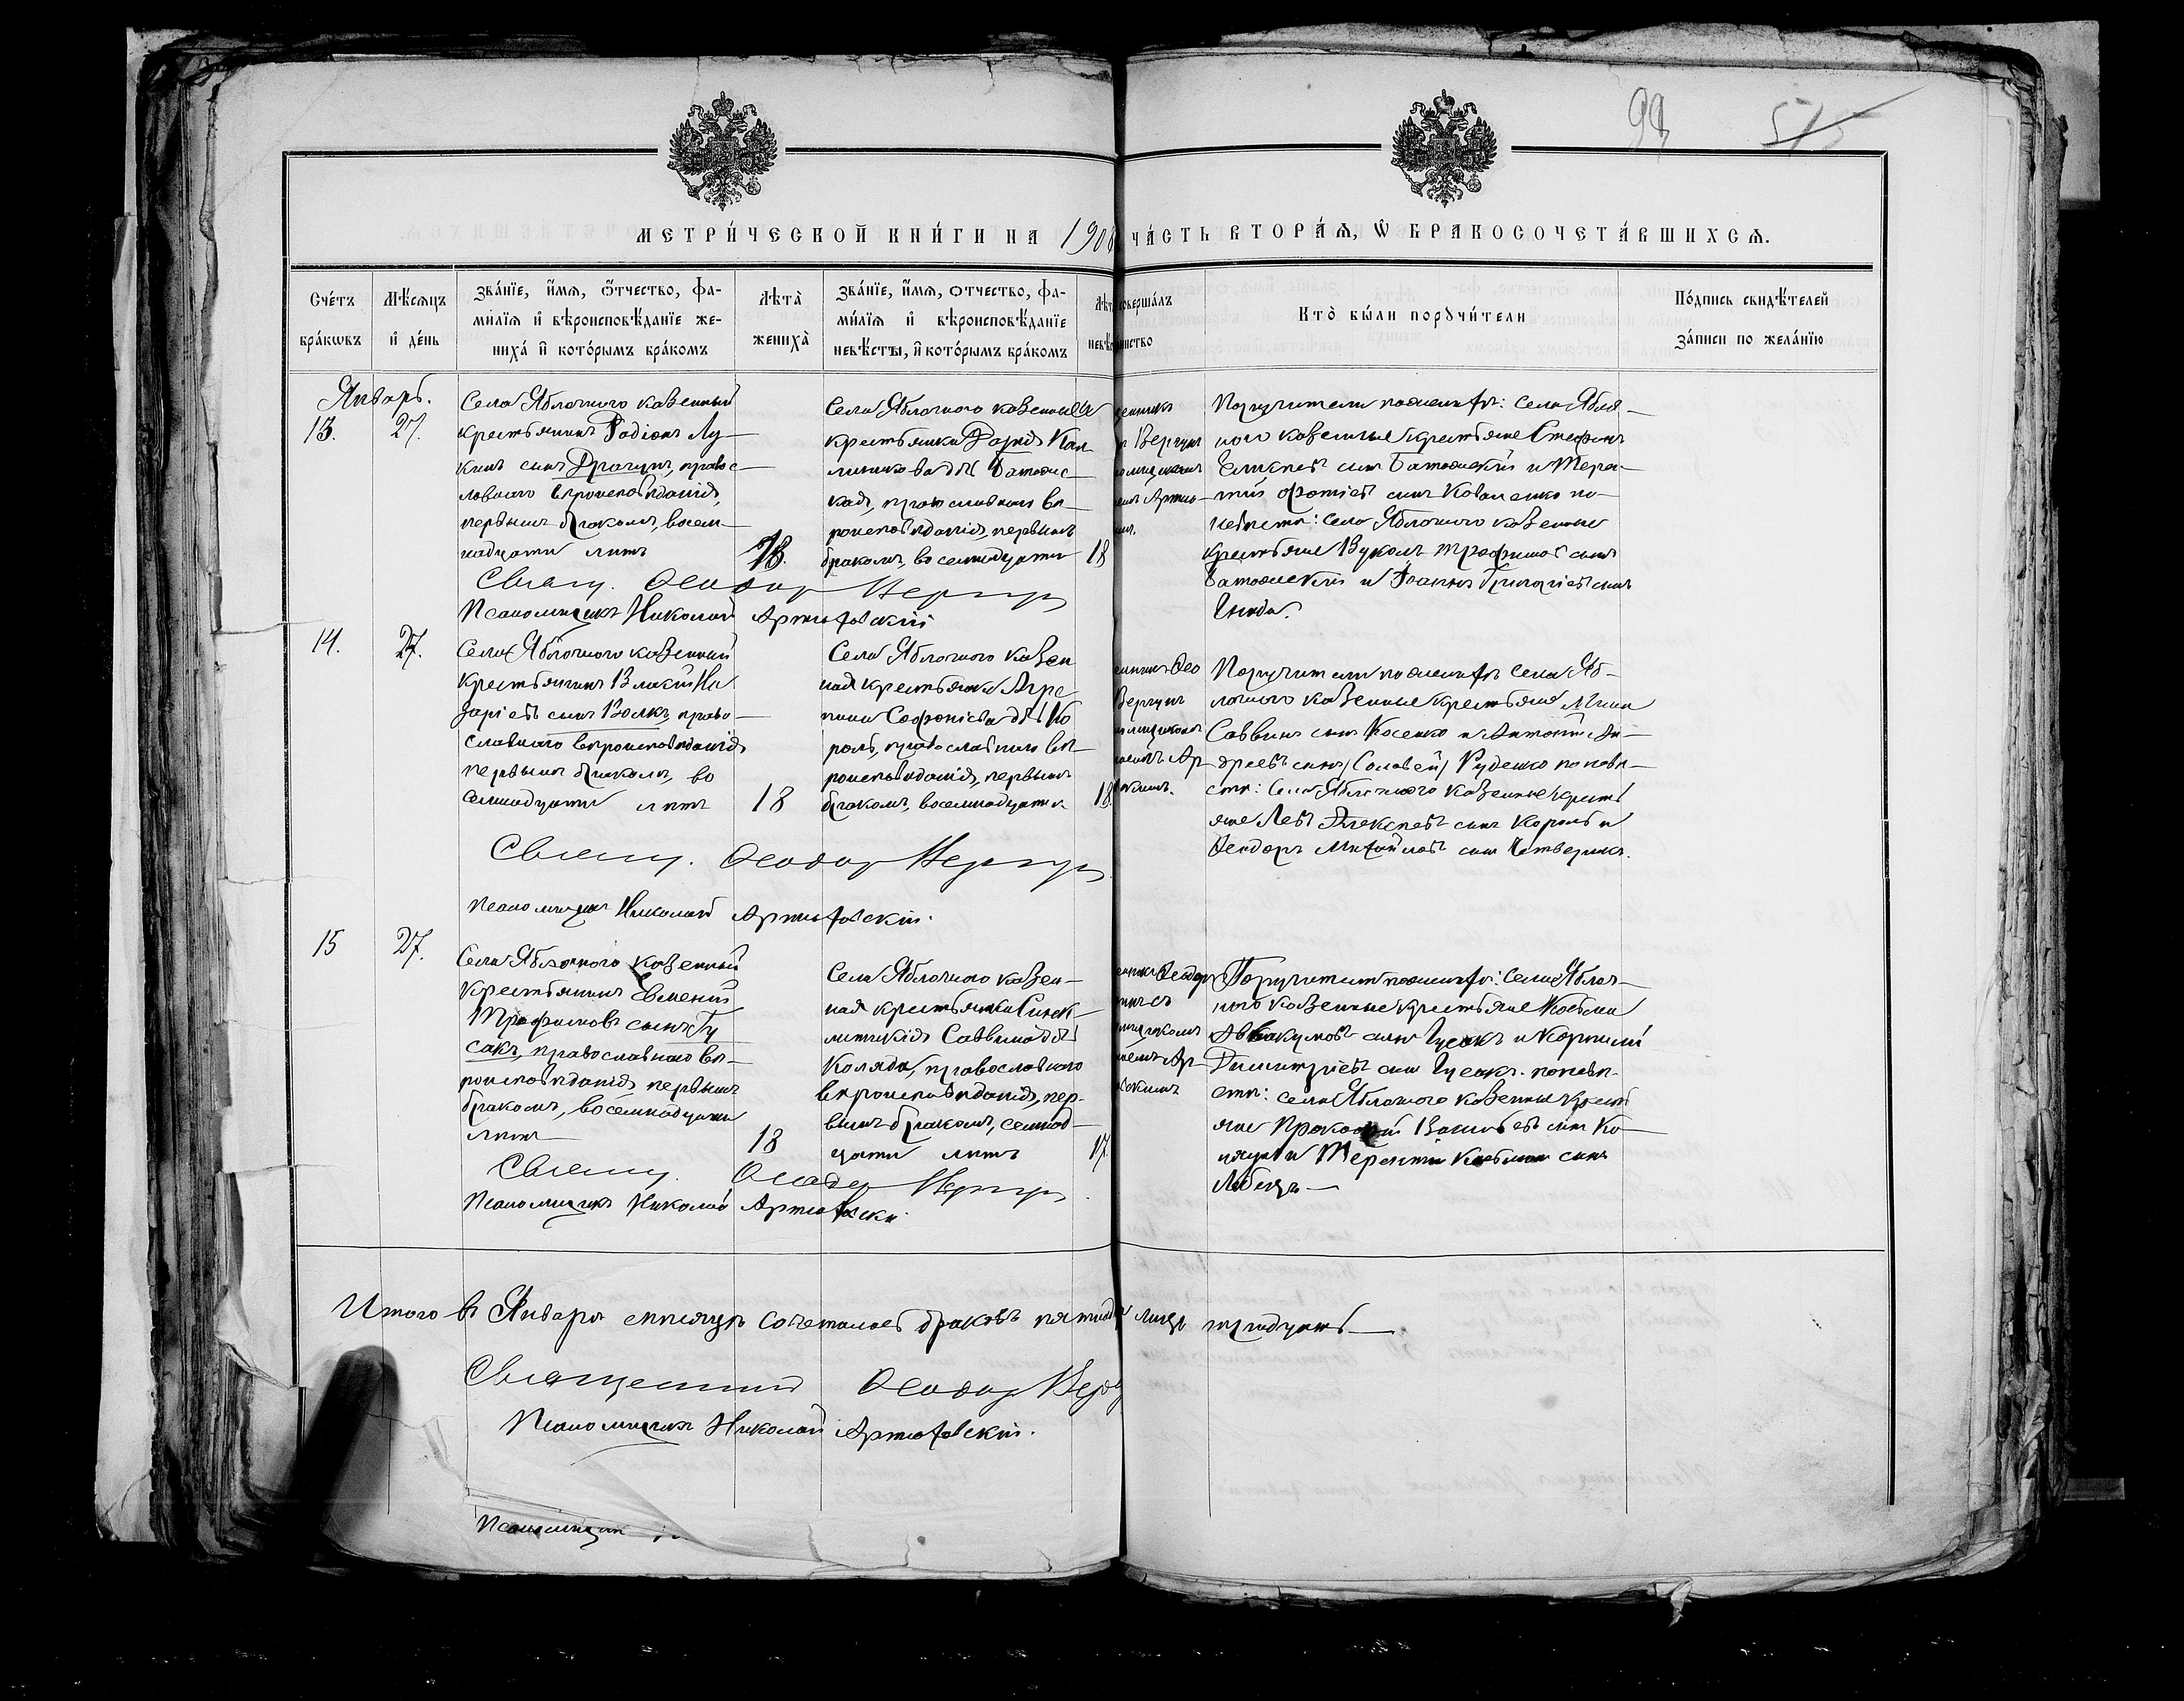 99 515
МЕТРИ́ЧЕСКОЙ КНИ́ГИ НА 1908 ЧА́СТЬ ВТОРА́Ѧ, Ѡ БРАКОСОЧЕТА́ВШИХСѦ.
Сче́тъ бра́кѡвъ
Мѣ́сѧцъ и де́нь
Зва́нїе, и́мѧ, ѻ́тчество, фами́лїѧ и вѣроисповѣ́данїе жениха̀ и кото́рымъ бра́комъ
Лѣта̀ жениха̀
Зва́нїе, и́мѧ, отчество, фами́лїѧ и вѣроисповѣ́данїе невѣ́сты, и кото́рымъ бра́комъ
Лѣт
невѣс
соверша́лъ
инство
Кто̀ бы́ли порꙋчи́тели
По́дпись свидѣ́телей за́писи по жела́нїю
Январь.
13. 27.
Села Яблочного казенный
крестьянинъ Родіонъ Лу-
кинъ сынъ Драгунъ, правос-
лавнаго вѣроисповѣданія,
первымъ бракомъ, восем-
надцати лѣтъ
18.
Села Яблочного казенная
крестьянка Дарія Кал-
линикова дчь Батовс-
кая, православнаго вѣ-
роисповѣданія, первымъ
бракомъ, восемнадцати
18
Вергунъ
Поручители по женихѣ: села Яблоч-
ного казенные крестьяне Стефанъ
сынъ и Тере-
нтій Фотіевъ сынъ Коваленко по
невѣстѣ: села Яблочного казенные
крестьяне Вуколъ Трофимовъ сынъ
и Іоаннъ Григоріевъ сынъ
Гнида.
Свящ. Ѳеодоръ Вергунъ
Псаломщикъ Николай Артюховскій
14. 27.
Села Яблочного казенный
крестьянинъ Власій На
заріевъ сынъ Волкъ, право-
славнаго вѣроисповѣданія
первымъ бракомъ, во
семнадцати лѣтъ
18
Села Яблочного казен
ная крестьянка Агре
пина Софоніева дчь Ко
роль, православнаго вѣ-
роисповѣданія, первымъ
бракомъ, восемнадцати
18.
Ѳео
Вергунъ
Поручители по женихѣ села Яб-
лочного казенные крестьяне Мина
Саввинъ сынъ Косенко и Антоній Ан-
дреевъ сынъ (Соловей) Руденко по невѣ-
стѣ: села Яблочного казенные крестъ
яне Левъ Алексѣевъ сынъ Король и
Ѳеодоръ Михайловъ сынъ Четверикъ.
Свящ. Ѳеодоръ Вергунъ
Псаломщикъ Николай Артюховскій.
15 27.
Села Яблочного казенный
крестьянинъ Евменій
Трофимовъ сынъ Гу
сакъ, православнаго вѣ-
роисповѣданія, первымъ
бракомъ, восемнадцати
лѣтъ
18
Села Яблочного казен-
ная крестьянка Синк-
литикія Саввина дчь
Коляда, православнаго
вѣроисповѣданія, пер-
вымъ бракомъ, семнад-
цати лѣтъ
17.
Ѳеодоръ
Поручители по женихѣ: села Яблоч-
ного казенные крестьяне Косьма
Аввакумовъ сынъ Гусакъ и Корнилій
Димитріевъ сынъ Гусакъ. по невѣ-
стѣ: села Яблочного казенные крест
яне Прокопій сынъ Ко-
и Терентій Косьминъ сынъ
Свящ. Ѳеодоръ Вергунъ
Псаломщикъ Николай Артюховскій
Итого въ Январѣ мѣсяцѣ сочеталось браковъ пятнад лицъ тридцать
Священникъ Ѳеодоръ Верг
Псаломщикъ Николай Артюховскій.
Псаломщик